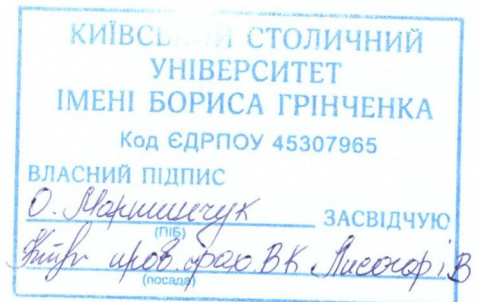 КИЇВСЬКИЙ СТОЛИЧНИЙ
УНІВЕРСИТЕТ
ІМЕНІ БОРИСА ГРІНЧЕНКА
Код ЄДРПОУ 45307965
ВЛАСНИЙ ПІДПИС
О. Мартинчук ЗАСВІДЧУЮ
(ПІБ)
пров. фах. ВК
(посада)